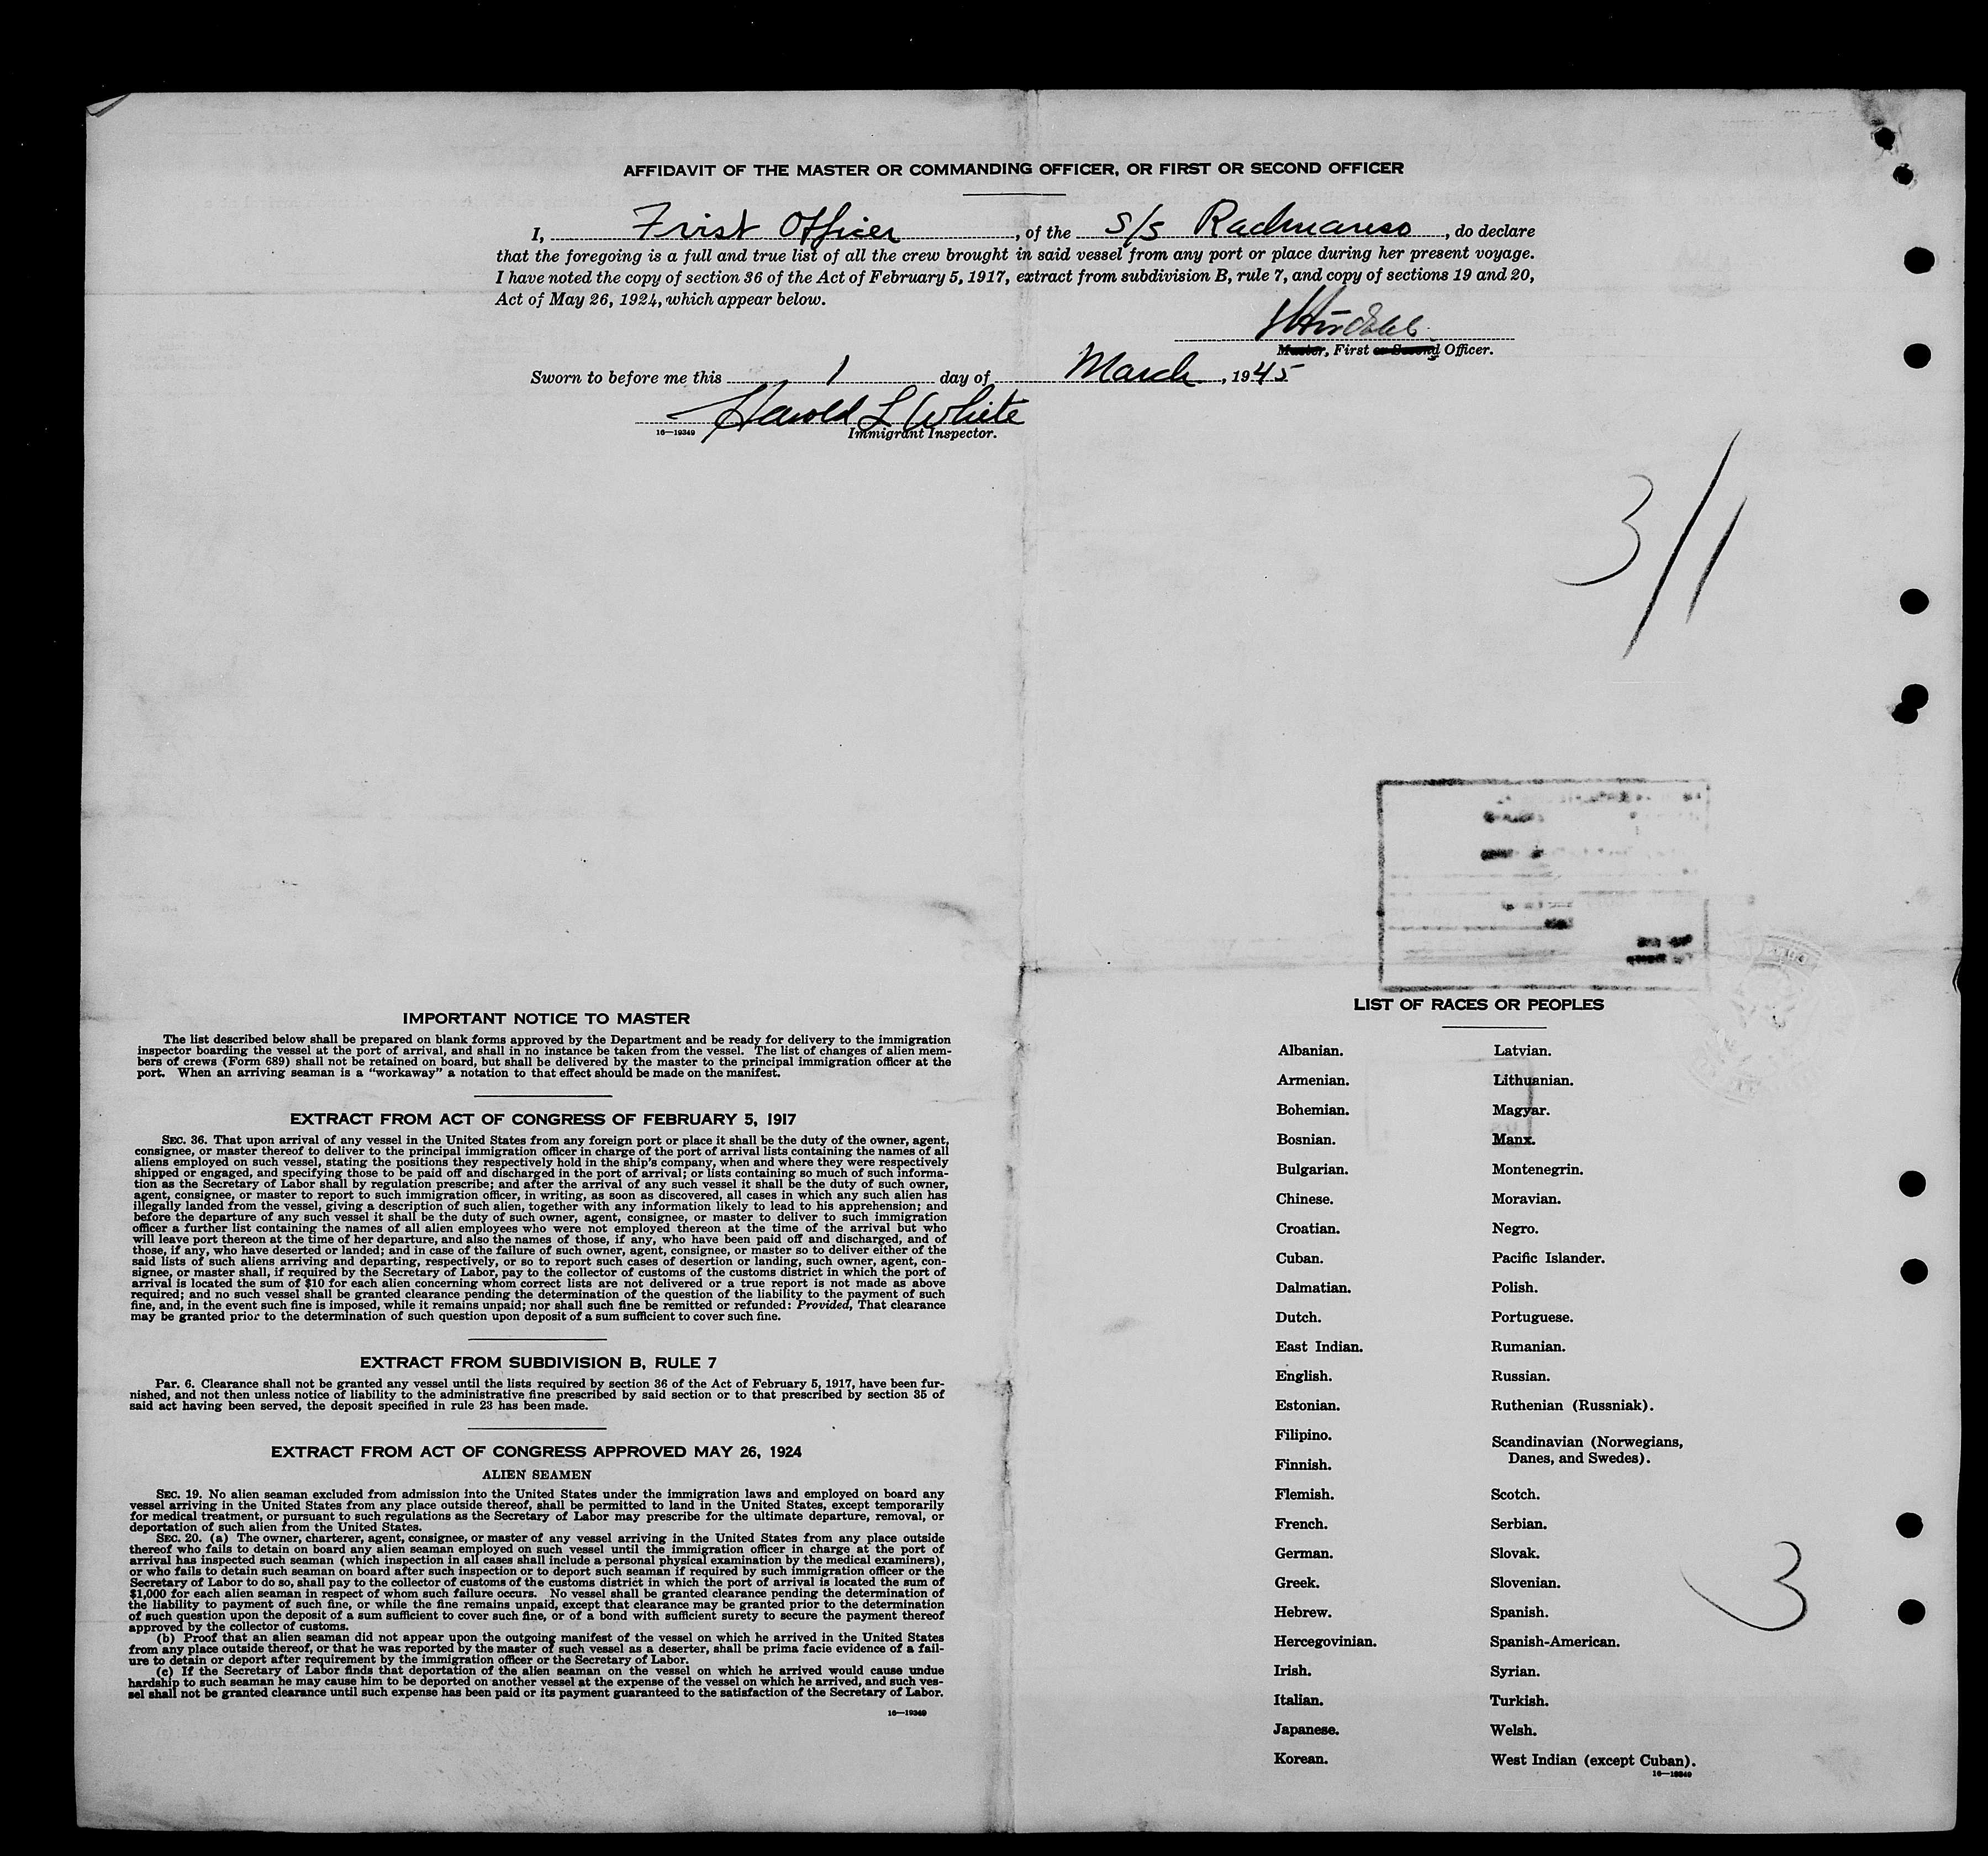 AFFIDAVIT OF THE MASTER OR COMMANDING OFFICER, OR FIRST OR SECOND OFFICER
I, Frist Officer, of the S/S Radmanso, do declare
that the foregoing is a full and true list of all the crew brought in said vessel from any port or place during her present voyage.
I have noted the copy of section 36 of the Act of February 5, 1917, extract from subdivision B, rule 7, and copy of sections 19 and 20,
Act of May 26, 1924, which appear below.
Master, First or Second Officer.
Sworn to before me this 1 day of March, 1945
Harold L White
16—19349 Immigrant Inspector.
3/1
IMPORTANT NOTICE TO MASTER
The list described below shall be prepared on blank forms approved by the Department and be ready for delivery to the immigration
inspector boarding the vessel at the port of arrival, and shall in no instance be taken from the vessel. The list of changes of alien mem-
bers of crews (Form 689) shall not be retained on board, but shall be delivered by the master to the principal immigration officer at the
port. When an arriving seaman is a "workaway" a notation to that effect should be made on the manifest.
EXTRACT FROM ACT OF CONGRESS OF FEBRUARY 5, 1917
SEC. 36. That upon arrival of any vessel in the United States from any foreign port or place it shall be the duty of the owner, agent,
consignee, or master thereof to deliver to the principal immigration officer in charge of the port of arrival lists containing the names of all
aliens employed on such vessel, stating the positions they respectively hold in the ship's company, when and where they were respectively
shipped or engaged, and specifying those to be paid off and discharged in the port of arrival; or lists containing so much of such informa-
tion as the Secretary of Labor shall by regulation prescribe; and after the arrival of any such vessel it shall be the duty of such owner,
agent, consignee, or master to report to such immigration officer, in writing, as soon as discovered, all cases in which any such alien has
illegally landed from the vessel, giving a description of such alien, together with any information likely to lead to his apprehension; and
before the departure of any such vessel it shall be the duty of such owner, agent, consignee, or master to deliver to such immigration
officer a further list containing the names of all alien employees who were not employed thereon at the time of the arrival but who
will leave port thereon at the time of her departure, and also the names of those, if any, who have been paid off and discharged, and of
those, if any, who have deserted or landed; and in case of the failure of such owner, agent, consignee, or master so to deliver either of the
said lists of such aliens arriving and departing, respectively, or so to report such cases of desertion or landing, such owner, agent, con-
signee, or master shall, if required by the Secretary of Labor, pay to the collector of customs of the customs district in which the port of
arrival is located the sum of $10 for each alien concerning whom correct lists are not delivered or a true report is not made as above
required; and no such vessel shall be granted clearance pending the determination of the question of the liability to the payment of such
fine, and, in the event such fine is imposed, while it remains unpaid; nor shall such fine be remitted or refunded: Provided, That clearance
may be granted prior to the determination of such question upon deposit of a sum sufficient to cover such fine.
EXTRACT FROM SUBDIVISION B, RULE 7
Par. 6. Clearance shall not be granted any vessel until the lists required by section 36 of the Act of February 5, 1917, have been fur-
nished, and not then unless notice of liability to the administrative fine prescribed by said section or to that prescribed by section 35 of
said act having been served, the deposit specified in rule 23 has been made.
EXTRACT FROM ACT OF CONGRESS APPROVED MAY 26, 1924
ALIEN SEAMEN
SEC. 19. No alien seaman excluded from admission into the United States under the immigration laws and employed on board any
vessel arriving in the United States from any place outside thereof, shall be permitted to land in the United States, except temporarily
for medical treatment, or pursuant to such regulations as the Secretary of Labor may prescribe for the ultimate departure, removal, or
deportation of such alien from the United States.
SEC. 20. (a) The owner, charterer, agent, consignee, or master of any vessel arriving in the United States from any place outside
thereof who fails to detain on board any alien seaman employed on such vessel until the immigration officer in charge at the port of
arrival has inspected such seaman (which inspection in all cases shall include a personal physical examination by the medical examiners),
or who fails to detain such seaman on board after such inspection or to deport such seaman if required by such immigration officer or the
Secretary of Labor to do so, shall pay to the collector of customs of the customs district in which the port of arrival is located the sum of
$1,000 for each alien seaman in respect of whom such failure occurs. No vessel shall be granted clearance pending the determination of
the liability to payment of such fine, or while the fine remains unpaid, except that clearance may be granted prior to the determination
of such question upon the deposit of a sum sufficient to cover such fine, or of a bond with sufficient surety to secure the payment thereof
approved by the collector of customs.
(b) Proof that an alien seaman did not appear upon the outgoing manifest of the vessel on which he arrived in the United States
from any place outside thereof, or that he was reported by the master of such vessel as a deserter, shall be prima facie evidence of a fail-
ure to detain or deport after requirement by the immigration officer or the Secretary of Labor.
(c) If the Secretary of Labor finds that deportation of the alien seaman on the vessel on which he arrived would cause undue
hardship to such seaman he may cause him to be deported on another vessel at the expense of the vessel on which he arrived, and such ves-
sel shall not be granted clearance until such expense has been paid or its payment guaranteed to the satisfaction of the Secretary of Labor.
16—19349
LIST OF RACES OR PEOPLES
Albanian.
Armenian.
Bohemian.
Bosnian.
Bulgarian.
Chinese.
Croatian.
Cuban.
Dalmatian.
Dutch.
East Indian.
English.
Estonian.
Filipino.
Finnish.
Flemish.
French.
German.
Greek.
Hebrew.
Hercegovinian.
Irish.
Italian.
Japanese.
Korean.
Latvian.
Lithuanian.
Magyar.
Manx.
Montenegrin.
Moravian.
Negro.
Pacific Islander.
Polish.
Portuguese.
Rumanian.
Russian.
Ruthenian (Russniak).
Scandinavian (Norwegians,
Danes, and Swedes).
Scotch.
Serbian.
Slovak.
Slovenian.
Spanish.
Spanish-American.
Syrian.
Turkish.
Welsh.
West Indian (except Cuban).
16—19349
3